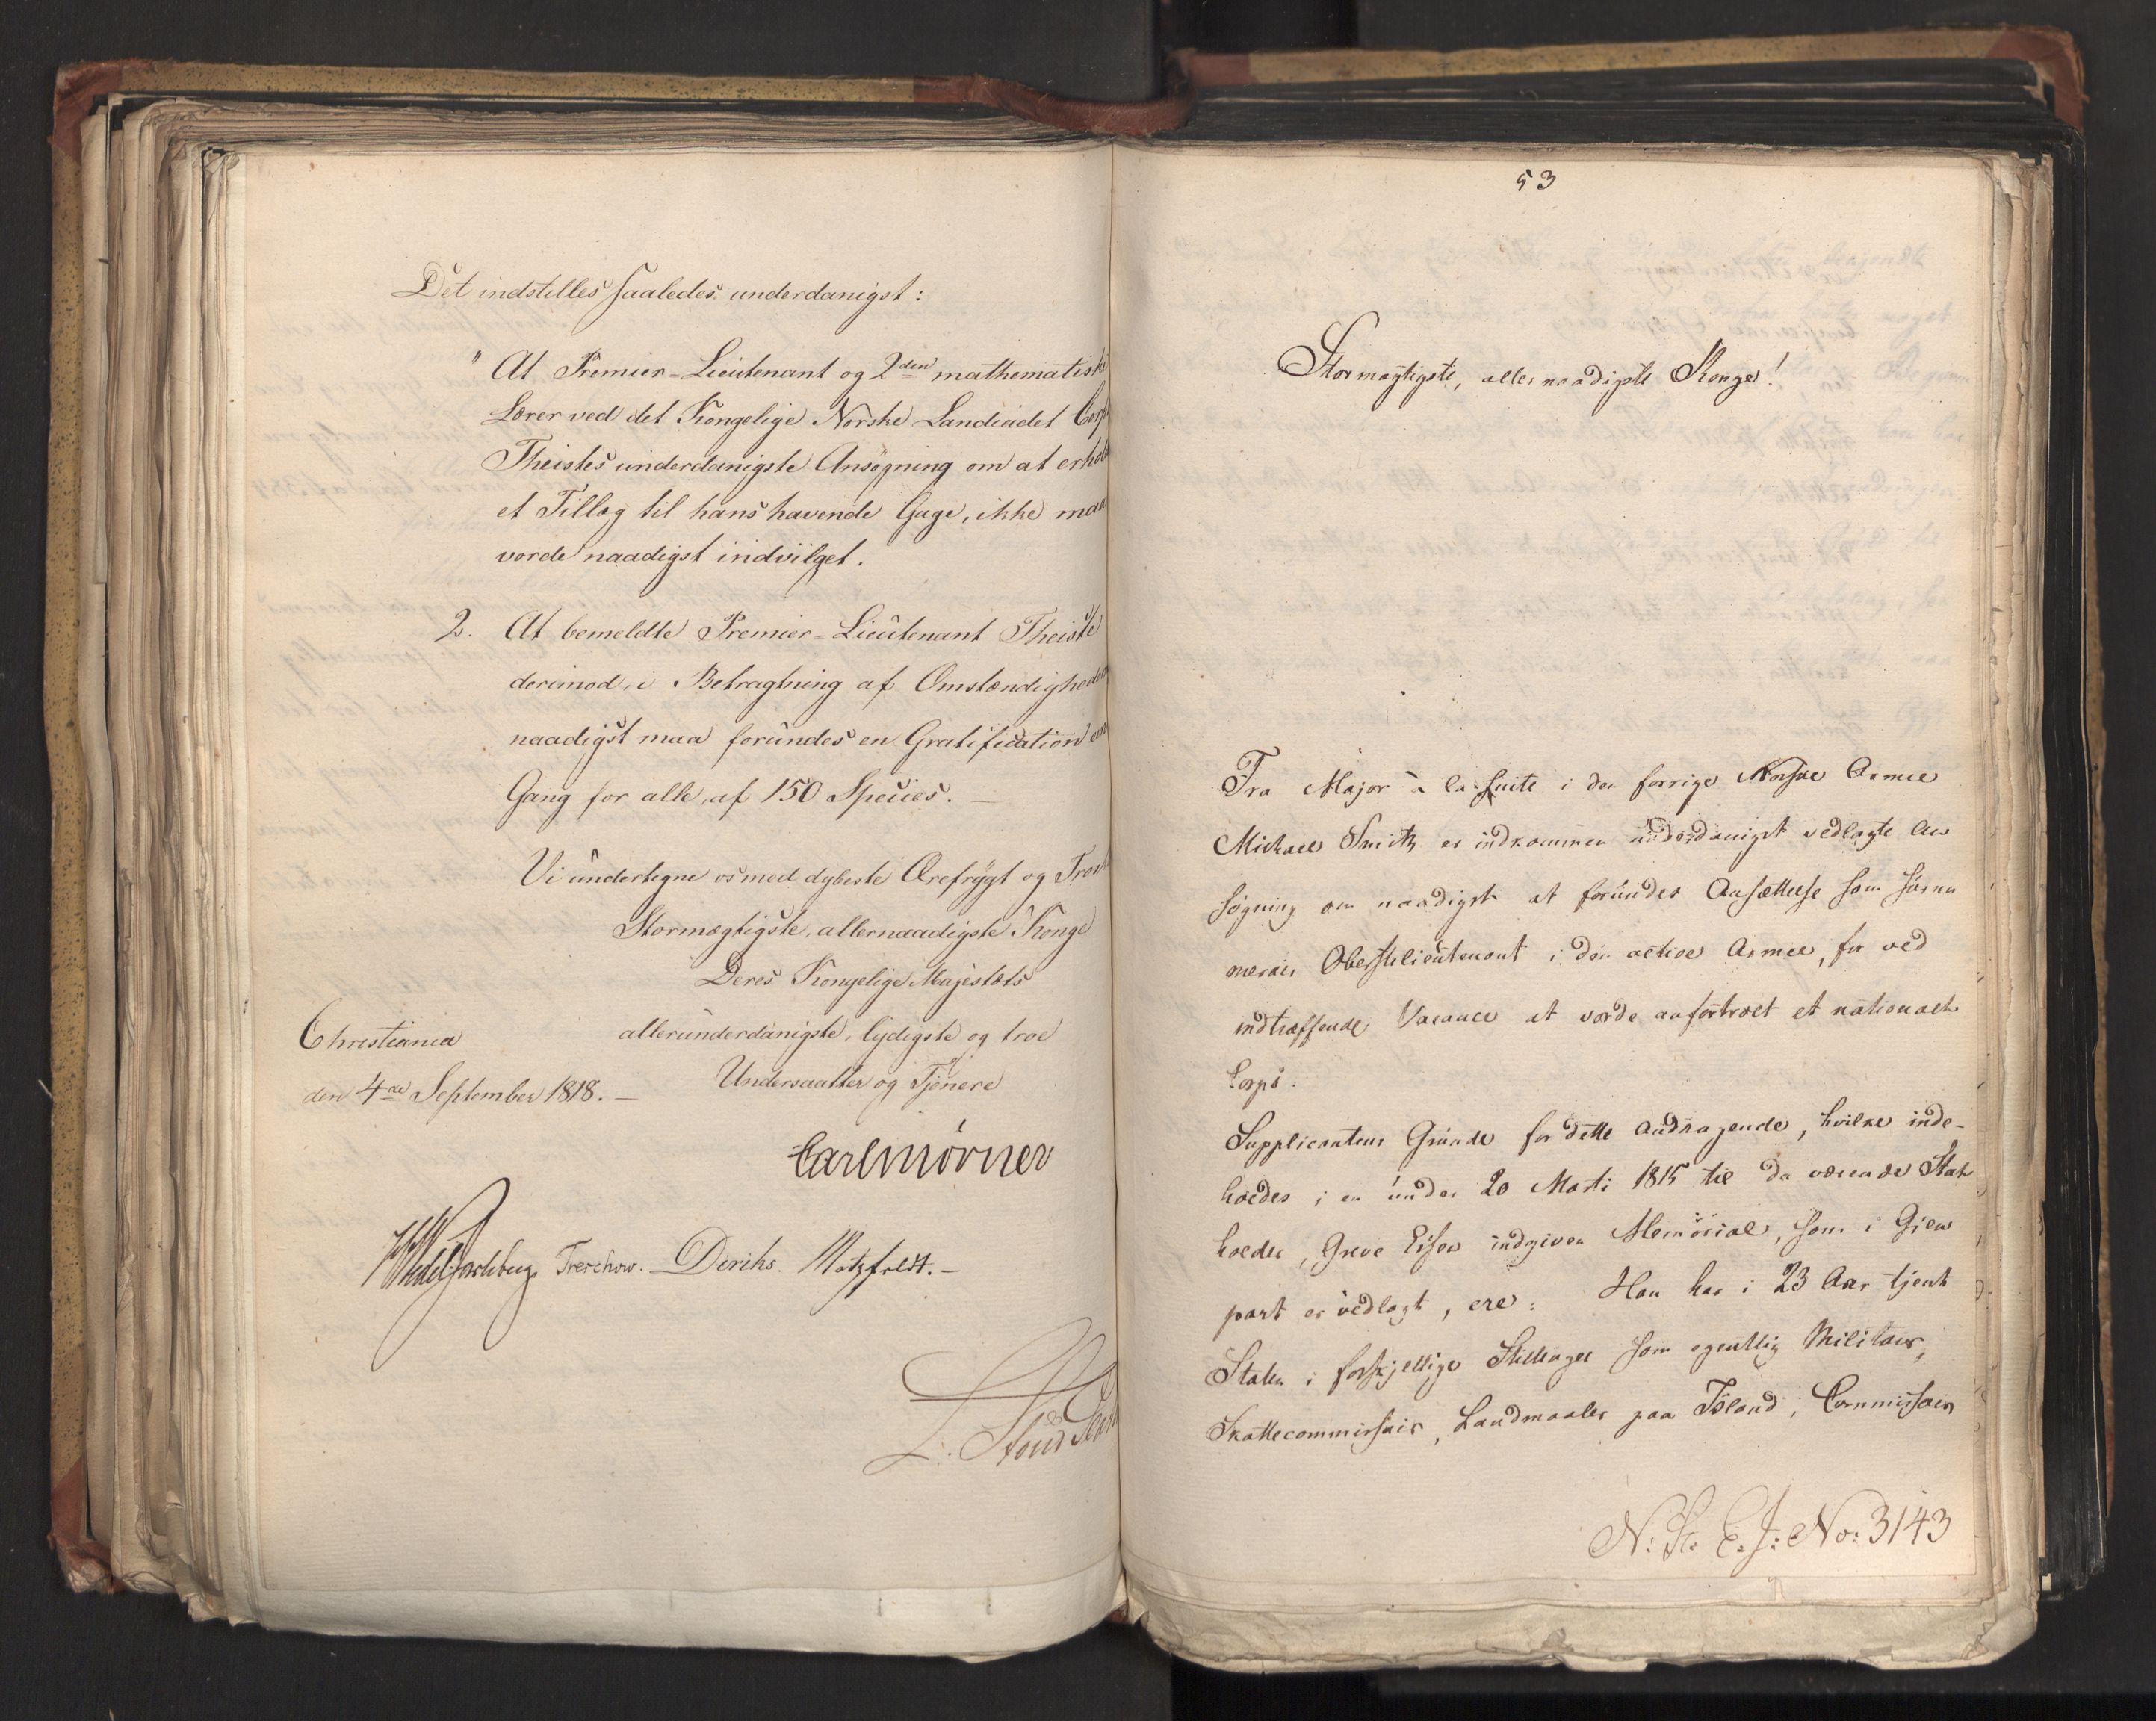 Det indstilles saaledes underdanigst:
" At Premier-Lieutenant og 2den mathematiske
Lærer ved det Kongelige Norske Landcadet Corp
Theistes underdanigste Ansøgning om at erhold
et Tillæg til hans havende Gage, ikke maa
vorde naadigst indvilget.
2. At bemeldte Premier-Lieutenant Theiste
derimod, i Betragtning af Omstændigheden
naadigst maa forundes en Gratification een
Gang for alle, af 150 Species. —
Vi undertegne os med dybeste Ærefrygt og Trosk
Stormægtigste, allernaadigste Konge
Deres Kongelige Majestæts
Christiania allerunderdanigste, lydigste og troe
den 4de September 1818. — Undersaatter og Tjenere
Carl Mörner
Wedel Jarlsberg Treschow. Diriks. Motzfeldt. —
53
Stormægtigste, allernaadigste Konge!
Fra Major à la Suite i den forrige Norske Armee
Michael Smith er indkommen underdanigst vedlagte An
søgning om naadigst at forundes Ansættelse som surnu
merair Oberstlieutenant i den active Armee, for ved
indtræffende Vacance at vorde anfortroet et nationalt
Corps.
Supplicantens Grunde for dette Andragende, hvilke inde-
holdes i en under 20 Marti 1815 til da værende Stat
holder, Greve Essen indgiven Memorial, som i Gjen
part er vedlagt, ere: Han har i 23 Aar tjent
Staten i forskjellige Stillinger som egentlig Militair,
Skattecommissair, Landmaaler paa Island, Commissair
N: St. E. J: No: 3143